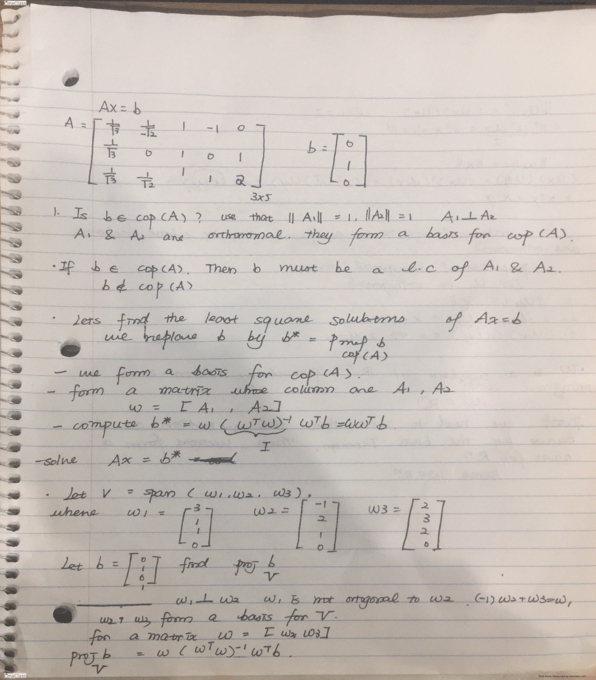 Ax = b
A = [ 1/√3 1/-√2 1 -1 0
1/√3 0 1 0 1
1/√3 1/√2 1 1 2 ] 3x5
b = [ 0 1 0 ]
1. Is b ∈ cop(A)? use that || A1|| = 1, ||A2|| = 1 A1 ⊥ A2
A1 & A2 are orthonormal. they form a basis for cop(A).
· If b ∈ cop(A). Then b must be a l.c of A1 & A2.
b ∉ cop(A)
· Lets find the least square solutions of Ax=b
we replace b by b* = proj b
cop(A)
- we form a basis for cop(A).
- form a matrix whose column are A1, A2
w = [ A1, A2]
- compute b* = w (wTw)-1 wTb = wwTb
I
-solve Ax = b*
· Let V = span ( w1, w2, w3),
where w1 = [ 3 1 1 0 ] w2 = [ -1 2 1 0 ] w3 = [ 2 3 2 0 ]
Let b = [ 0 1 0 1 ] find proj b
V
w1 ⊥ w2 w1 is not ortogonal to w2 (-1) w2 + w3 = w1
w2 + w3 form a basis for V.
for a matrix w = [ w2 w3]
proj b = w (wTw)-1 wTb.
V